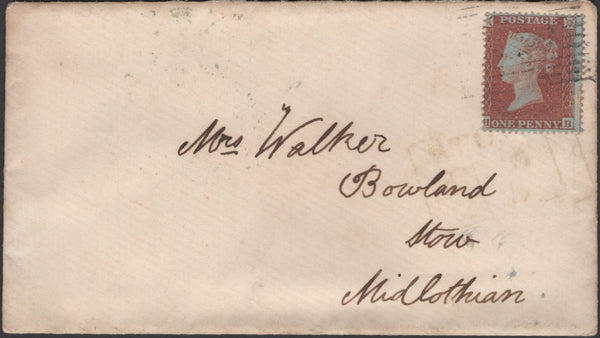 POSTAGE
ONE PENNY
H H
Mrs Walker
Bowland
Stow
Midlothian